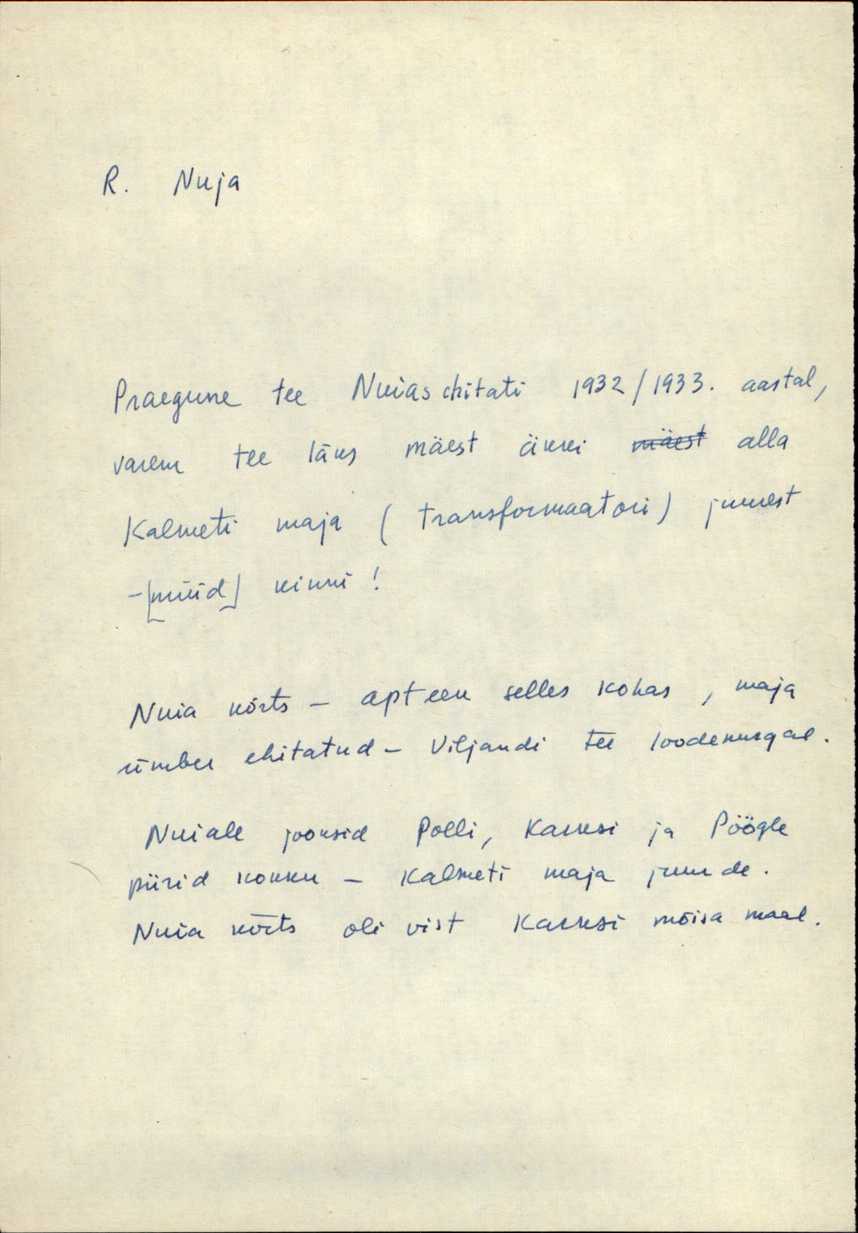 R. Nuja
Praegune tee Nuias ehitati 1932/1933. aastal,
varem tee läks mäest äkki mäest alla
Kalmeti maja (transformaatori) juurest
- [nüüd] kinni!
Nuia kõrts - apteek selles kohas, maja
ümber ehitatud - Viljandi tee loodenurgal.
Nuiale jooksid Polli, Karksi ja Pöögle
piirid kokku - Kalmeti maja juurde.
Nuia kõrts oli vist Karksi mõisa maal.